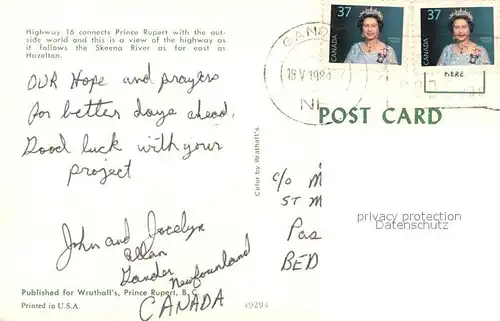 Highway 16 connects Prince Rupert with the out-
side world and this is a view of the highway as
it follows the Skeena River as far east as
Hazelton.
OUR Hope and prayers
for better days ahead.
Good luck with your
project
John and Jocelyn
Allan
Gander Newfounland
CANADA
Published for Wrathall's, Prince Rupert, B.C.
Printed in U.S.A.
49294
Color by Wrathall's
37
CANADA
37
CANADA
CANA
18 V 198
HERE
POST CARD
c/o M
ST M
Pas
BED
privacy protection
Datenschutz